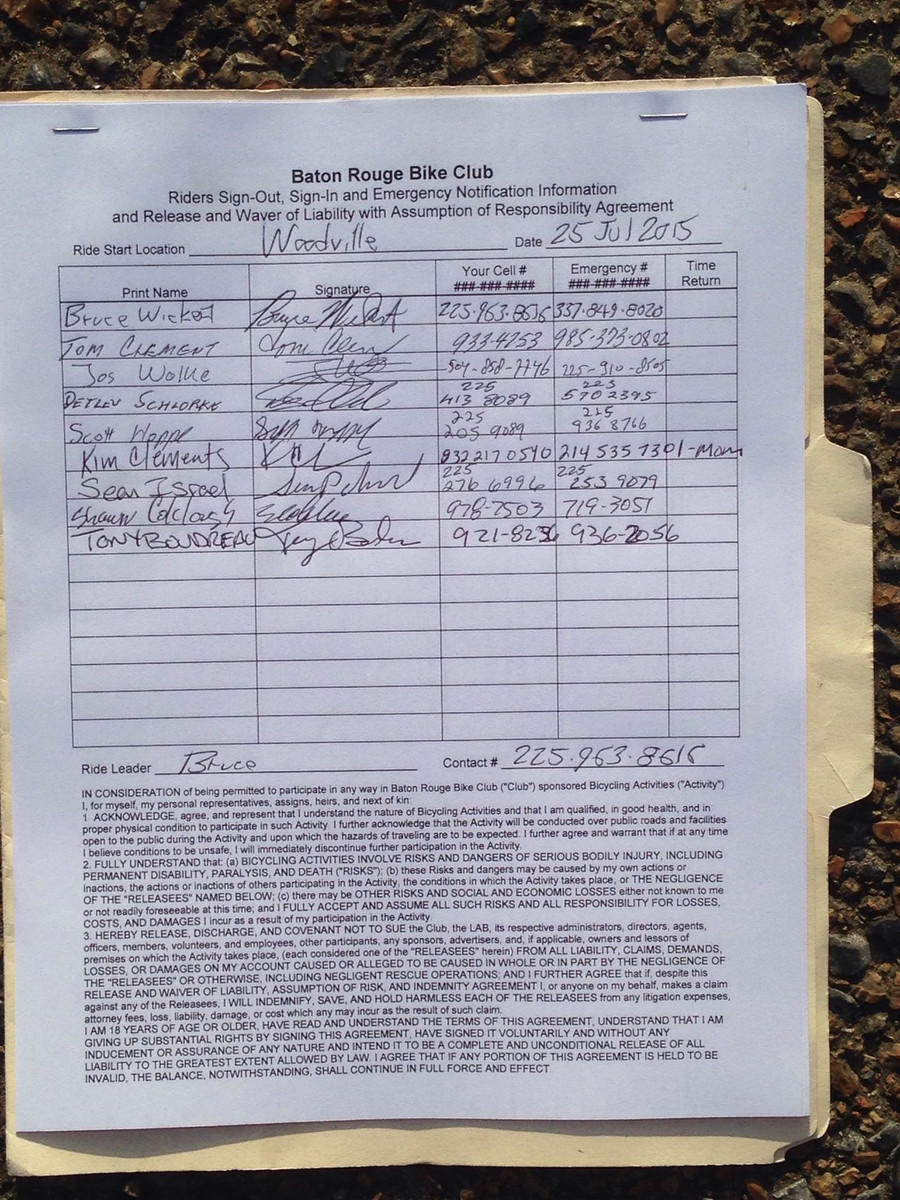 Baton Rouge Bike Club
Riders Sign-Out, Sign-In and Emergency Notification Information
and Release and Waiver of Liability with Assumption of Responsibility Agreement
Ride Start Location Woodville Date 25 Jul 2015
Print Name Signature Your Cell # ###-###-#### Emergency # ###-###-#### Time Return
Bruce Wickert 225.963.8616 337-849-8020
TOM CLEMENT 933-4753 985-373-0802
Jos Wolke 504-858-7746 225-910-8505
DETLEV SCHLORKE 225 413 8089 225 570 2395
Scott 225 205 9089 225 936 8766
Kim Clements 832 217 0540 214 535 7301-Mom
Sean Israel 225 276 6996 225 253 9079
Shaun 978-7503 719-3051
TONY BOUDREAU 921-8256 936-2056
Ride Leader Bruce Contact # 225.963.8616
IN CONSIDERATION of being permitted to participate in any way in Baton Rouge Bike Club ("Club") sponsored Bicycling Activities ("Activity")
I, for myself, my personal representatives, assigns, heirs, and next of kin:
1. ACKNOWLEDGE, agree, and represent that I understand the nature of Bicycling Activities and that I am qualified, in good health, and in
proper physical condition to participate in such Activity. I further acknowledge that the Activity will be conducted over public roads and facilities
open to the public during the Activity and upon which the hazards of traveling are to be expected. I further agree and warrant that if at any time
I believe conditions to be unsafe, I will immediately discontinue further participation in the Activity.
2. FULLY UNDERSTAND that: (a) BICYCLING ACTIVITIES INVOLVE RISKS AND DANGERS OF SERIOUS BODILY INJURY, INCLUDING
PERMANENT DISABILITY, PARALYSIS, AND DEATH ("RISKS"); (b) these Risks and dangers may be caused by my own actions or
inactions, the actions or inactions of others participating in the Activity, the conditions in which the Activity takes place, or THE NEGLIGENCE
OF THE "RELEASEES" NAMED BELOW; (c) there may be OTHER RISKS AND SOCIAL AND ECONOMIC LOSSES either not known to me
or not readily foreseeable at this time; and I FULLY ACCEPT AND ASSUME ALL SUCH RISKS AND ALL RESPONSIBILITY FOR LOSSES,
COSTS, AND DAMAGES I incur as a result of my participation in the Activity.
3. HEREBY RELEASE, DISCHARGE, AND COVENANT NOT TO SUE the Club, the LAB, its respective administrators, directors, agents,
officers, members, volunteers, and employees, other participants, any sponsors, advertisers, and, if applicable, owners and lessors of
premises on which the Activity takes place, (each considered one of the "RELEASEES" herein) FROM ALL LIABILITY, CLAIMS, DEMANDS,
LOSSES, OR DAMAGES ON MY ACCOUNT CAUSED OR ALLEGED TO BE CAUSED IN WHOLE OR IN PART BY THE NEGLIGENCE OF
THE "RELEASEES" OR OTHERWISE, INCLUDING NEGLIGENT RESCUE OPERATIONS; AND I FURTHER AGREE that if, despite this
RELEASE AND WAIVER OF LIABILITY, ASSUMPTION OF RISK, AND INDEMNITY AGREEMENT I, or anyone on my behalf, makes a claim
against any of the Releasees, I WILL INDEMNIFY, SAVE, AND HOLD HARMLESS EACH OF THE RELEASEES from any litigation expenses,
attorney fees, loss, liability, damage, or cost which any may incur as the result of such claim.
I AM 18 YEARS OF AGE OR OLDER, HAVE READ AND UNDERSTAND THE TERMS OF THIS AGREEMENT, UNDERSTAND THAT I AM
GIVING UP SUBSTANTIAL RIGHTS BY SIGNING THIS AGREEMENT, HAVE SIGNED IT VOLUNTARILY AND WITHOUT ANY
INDUCEMENT OR ASSURANCE OF ANY NATURE AND INTEND IT TO BE A COMPLETE AND UNCONDITIONAL RELEASE OF ALL
LIABILITY TO THE GREATEST EXTENT ALLOWED BY LAW. I AGREE THAT IF ANY PORTION OF THIS AGREEMENT IS HELD TO BE
INVALID, THE BALANCE, NOTWITHSTANDING, SHALL CONTINUE IN FULL FORCE AND EFFECT